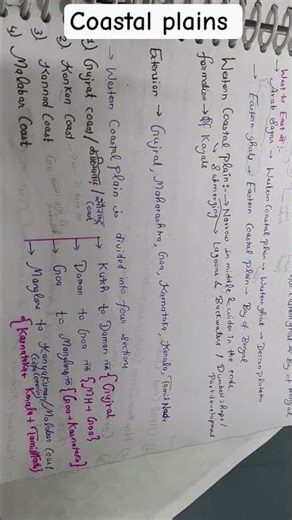 Coastal plains
West to East :-
→ Arab Sagar → Western Coastal plain → Western ghat → Deccan plateau
→ Eastern ghats → Eastern Coastal plain → Bay of Bengal
Western Coastal Plain :- → Narrow in middle & wider in the ends
→ Submerging → Lagoons & Backwaters /
formation → Kayals
Extension → Gujrat, Maharashtra, Goa, Karnataka, Kerala, Tamil Nadu
→ Western Coastal plain is divided into four sections
1) Gujrat coast / Coast → Kutch to Daman से {Gujrat
2) Konkan Coast → Daman to Goa से {MH + Goa}
3) Kannad Coast → Goa to Manglore से {Goa + Karnataka}
4) Malabar Coast → Manglore to Kanyakumari / Malabar Coast
{Karnataka + Kerala + Tamil Nadu}